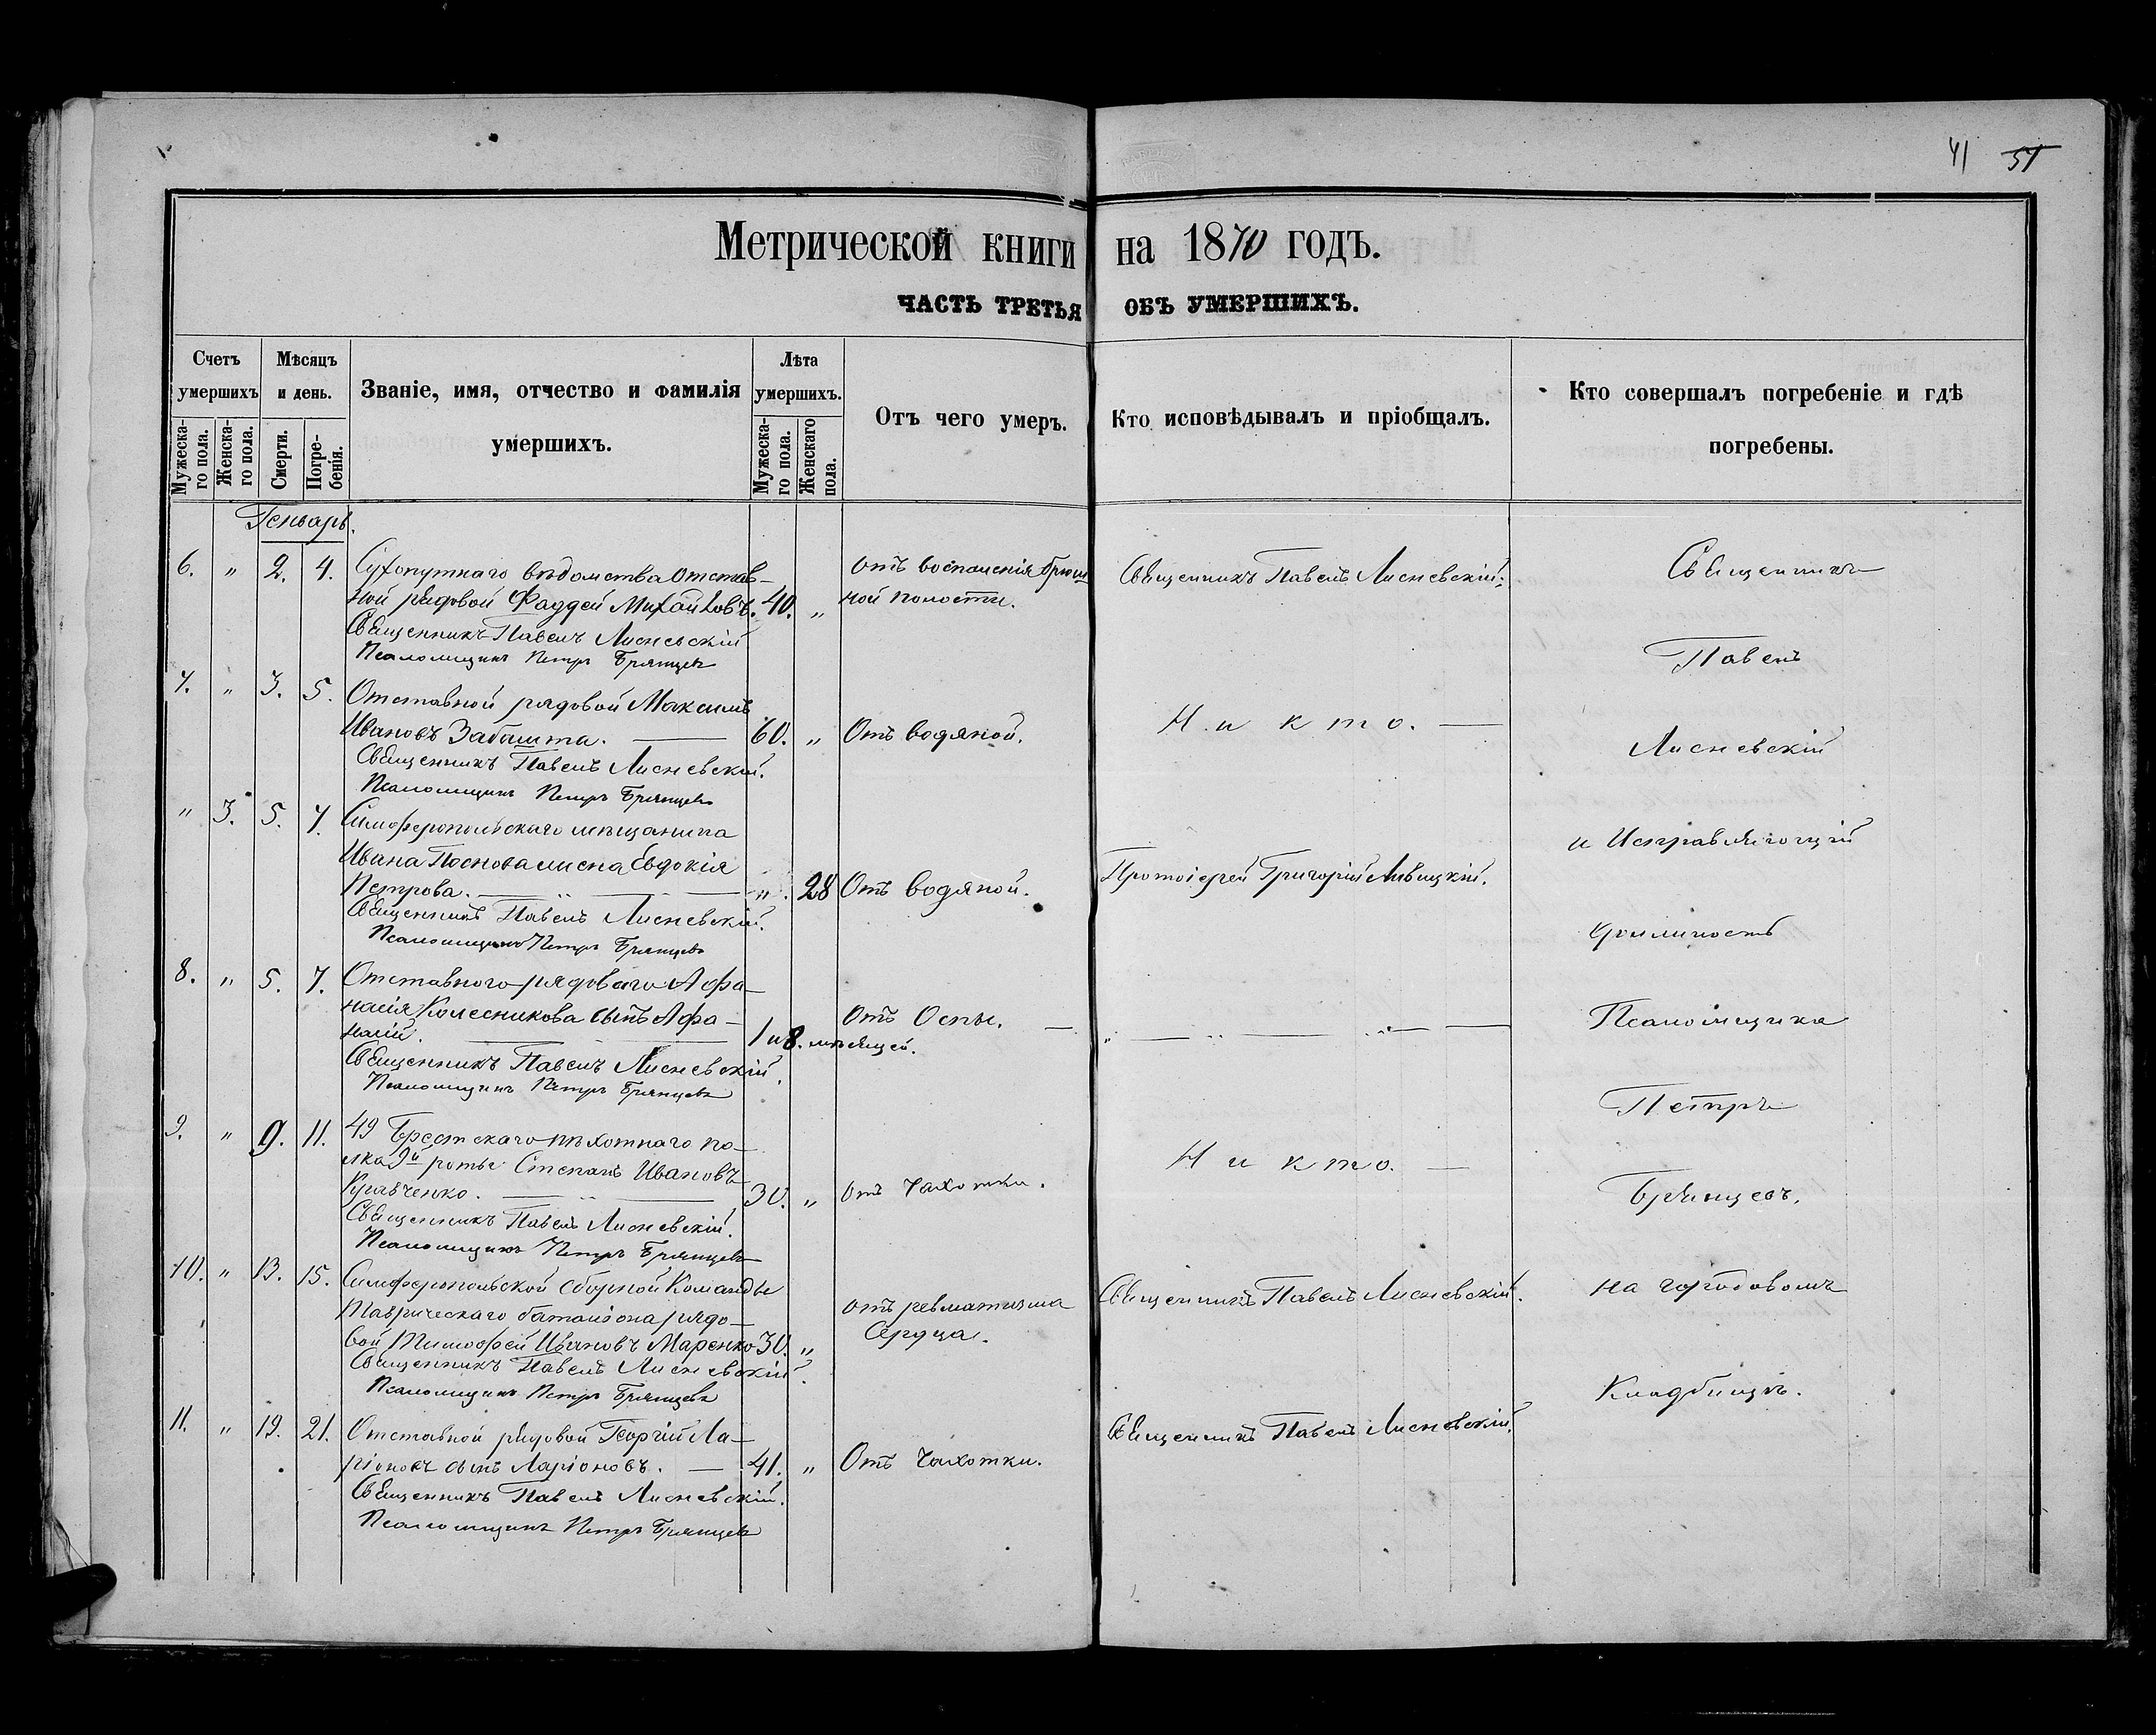 41 51
Метрической книги на 1870 годъ.
ЧАСТЬ ТРЕТЬЯ ОБЪ УМЕРШИХЪ.
Счетъ умершихъ
Мужеска-го пола.
Женска-го пола.
Мѣсяцъ и день.
Смерти.
Погре-бенія.
Званіе, имя, отчество и фамилія умершихъ.
Лѣта умершихъ.
Мужеска-го пола.
Женскаго пола.
Отъ чего умеръ.
Кто исповѣдывалъ и пріобщалъ.
Кто совершалъ погребеніе и гдѣ погребены.
Генварь.
6. " 2. 4. Сухопутнаго вѣдомства Отстав-
ной рядовой Фаддей Михайловъ. 40. "
отъ воспаленія брюш
ной полости.
Священникъ Павелъ Лисневскій.
Священникъ Павелъ Лисневскій
Псаломщикъ Петръ Брянцевъ
7. " 3. 5. Отставной рядовой Максимъ
Ивановъ Забашта. — 60. " Отъ водяной.
Н и к т о. —
Священникъ Павелъ Лисневскій.
Псаломщикъ Петръ Брянцевъ
" 3. 5. 7. Симферопольскаго мѣщанина
Ивана Поснова жена Евдокія
Петрова. — " — " 28 Отъ водяной.
Протоіерей Григорій Ливицкій.
Священникъ Павелъ Лисневскій.
Псаломщикъ Петръ Брянцевъ
8. " 5. 7. Отставного рядоваго Афа-
насія Колесникова сынъ Афа-
насій. — 1 и 8. мѣсяцей.
Отъ Оспы. —
" — " — " — —
Священникъ Павелъ Лисневскій.
Псаломщикъ Петръ Брянцевъ
9. " 9. 11. 49 Брестскаго пѣхотнаго по-
лка 9й роты Степанъ Ивановъ
Кравченко. — " — 30. " отъ Чахотки.
Н и к т о. —
Священникъ Павелъ Лисневскій.
Псаломщикъ Петръ Брянцевъ
10. " 13. 15. Симферопольской сборной Команды
Таврическаго баталіона рядо-
вой Тимофей Ивановъ Маренко 30. "
отъ ревматизма
Сердца.
Священникъ Павелъ Лисневскій.
Священникъ Павелъ Лисневскій.
Псаломщикъ Петръ Брянцевъ
11. " 19. 21. Отставной рядовой Георгій Ла-
ріоновъ сынъ Ларіоновъ. — 41. " Отъ Чахотки.
Священникъ Павелъ Лисневскій.
Священникъ Павелъ Лисневскій.
Псаломщикъ Петръ Брянцевъ
Священникъ
Павелъ
Лисневскій
и Исправляющій
должность
Псаломщика
Петръ
Брянцевъ,
на городовомъ
Кладбищѣ.